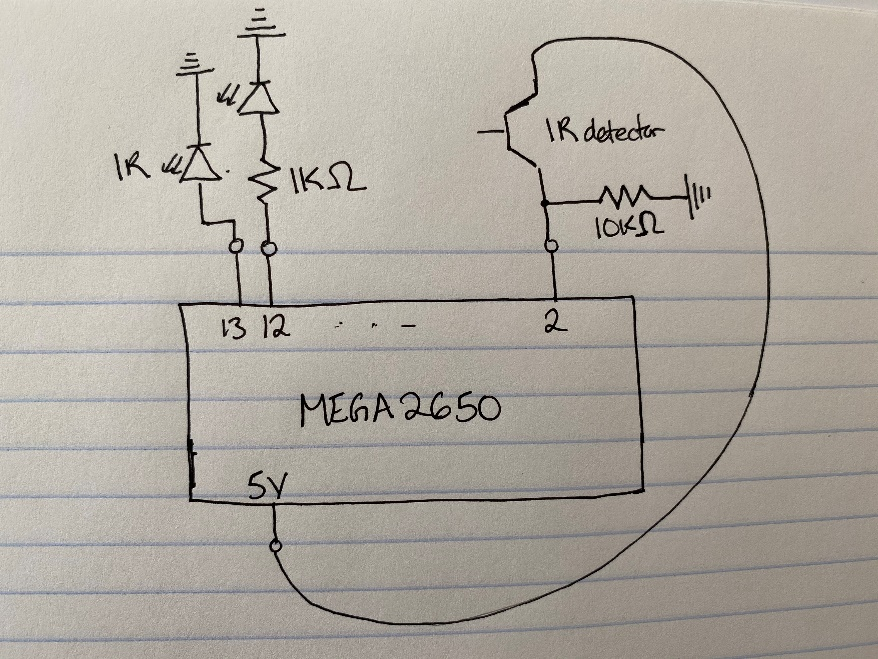 IR
1KΩ
IR detector
10KΩ
13 12 . . - 2
MEGA2650
5V